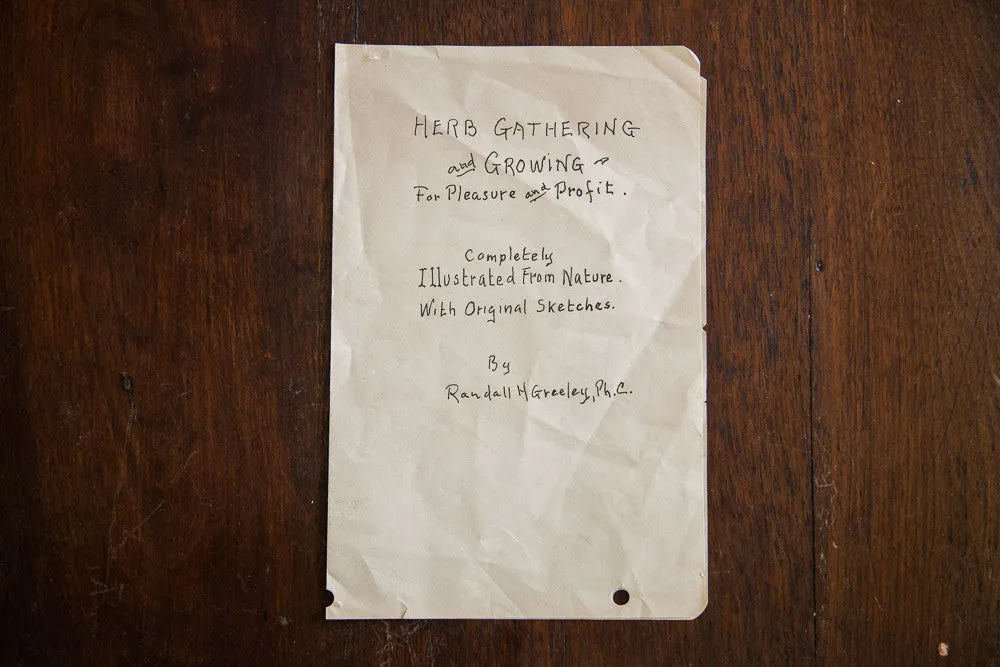 HERB GATHERING
and GROWING
For Pleasure and Profit.
Completely
Illustrated From Nature.
With Original Sketches.
By
Randall H Greeley, Ph.C.